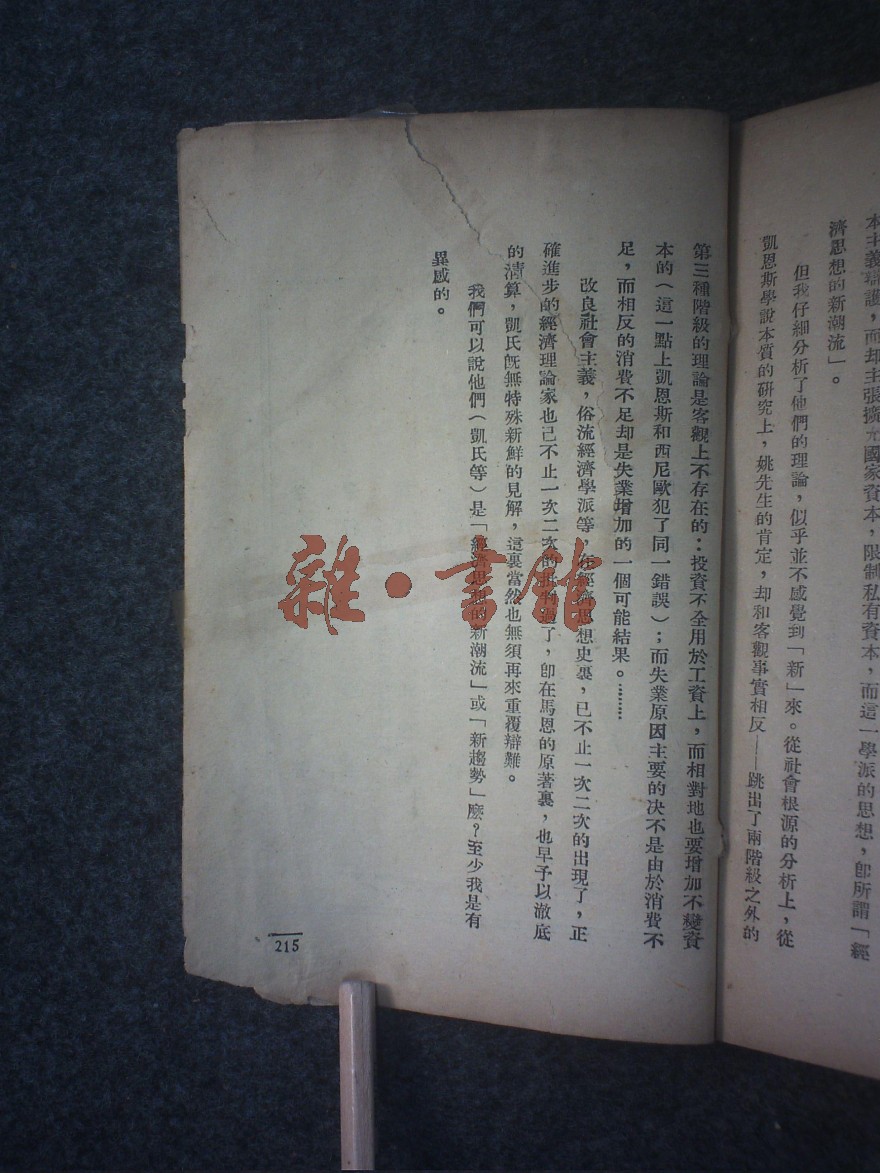 本主義辯護，而却主張擴充國家資本，限制私有資本，而這一學派的思想，卽所謂「經
濟思想的新潮流」。
但我仔細分析了他們的理論，似乎並不感覺到「新」來。從社會根源的分析上，從
凱恩斯學說本質的硏究上，姚先生的肯定，却和客觀事實相反——跳出了兩階級之外的
第三種階級的理論是客觀上不存在的：投資不全用於工資上，而相對地也要增加不變資
本的（這一點上凱恩斯和西尼歐犯了同一錯誤）；而失業原因主要的决不是由於消費不
足，而相反的消費不足却是失業增加的一個可能結果。………
改良社會主義，俗流經濟學派等，在經濟思想史裏，已不止一次二次的出現了，正
確進步的經濟理論家也已不止一次二次的批判過了，卽在馬恩的原著裏，也早予以澈底
的淸算，凱氏旣無特殊新鮮的見解，這裏當然也無須再來重覆辯難。
我們可以說他們（凱氏等）是「經濟思想的新潮流」或「新趨勢」麼？至少我是有
異感的。
215
雜·書館